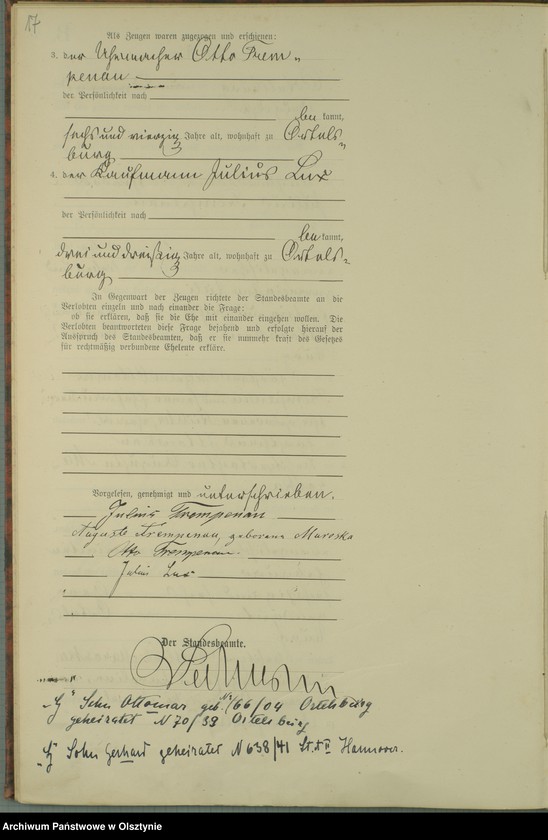 17
Als Zeugen waren zugezogen und erschienen:
3. der Uhrmacher Otto Trem-
penau
der Persönlichkeit nach
be kannt,
sechs und vierzig Jahre alt, wohnhaft zu Ortels-
burg
4. der Kaufmann Julius Lux
der Persönlichkeit nach
be kannt,
drei und dreißig Jahre alt, wohnhaft zu Ortels-
burg
In Gegenwart der Zeugen richtete der Standesbeamte an die
Verlobten einzeln und nach einander die Frage:
ob sie erklären, daß sie die Ehe mit einander eingehen wollen. Die
Verlobten beantworteten diese Frage bejahend und erfolgte hierauf der
Ausspruch des Standesbeamten, daß er sie nunmehr kraft des Gesetzes
für rechtmäßig verbundene Eheleute erkläre.
Vorgelesen, genehmigt und unterschrieben.
Julius Trempenau
Auguste Trempenau, geborene Mareska
Otto Trempenau
Julius Lux
Der Standesbeamte.
Sohn Ottomar geb. Nr. 66/04 Ortelsburg
geheiratet N 70/39 Ortelsburg
Sohn Gerhard geheiratet N 638/41 St.A II Hannover.
Archiwum Państwowe w Olsztynie